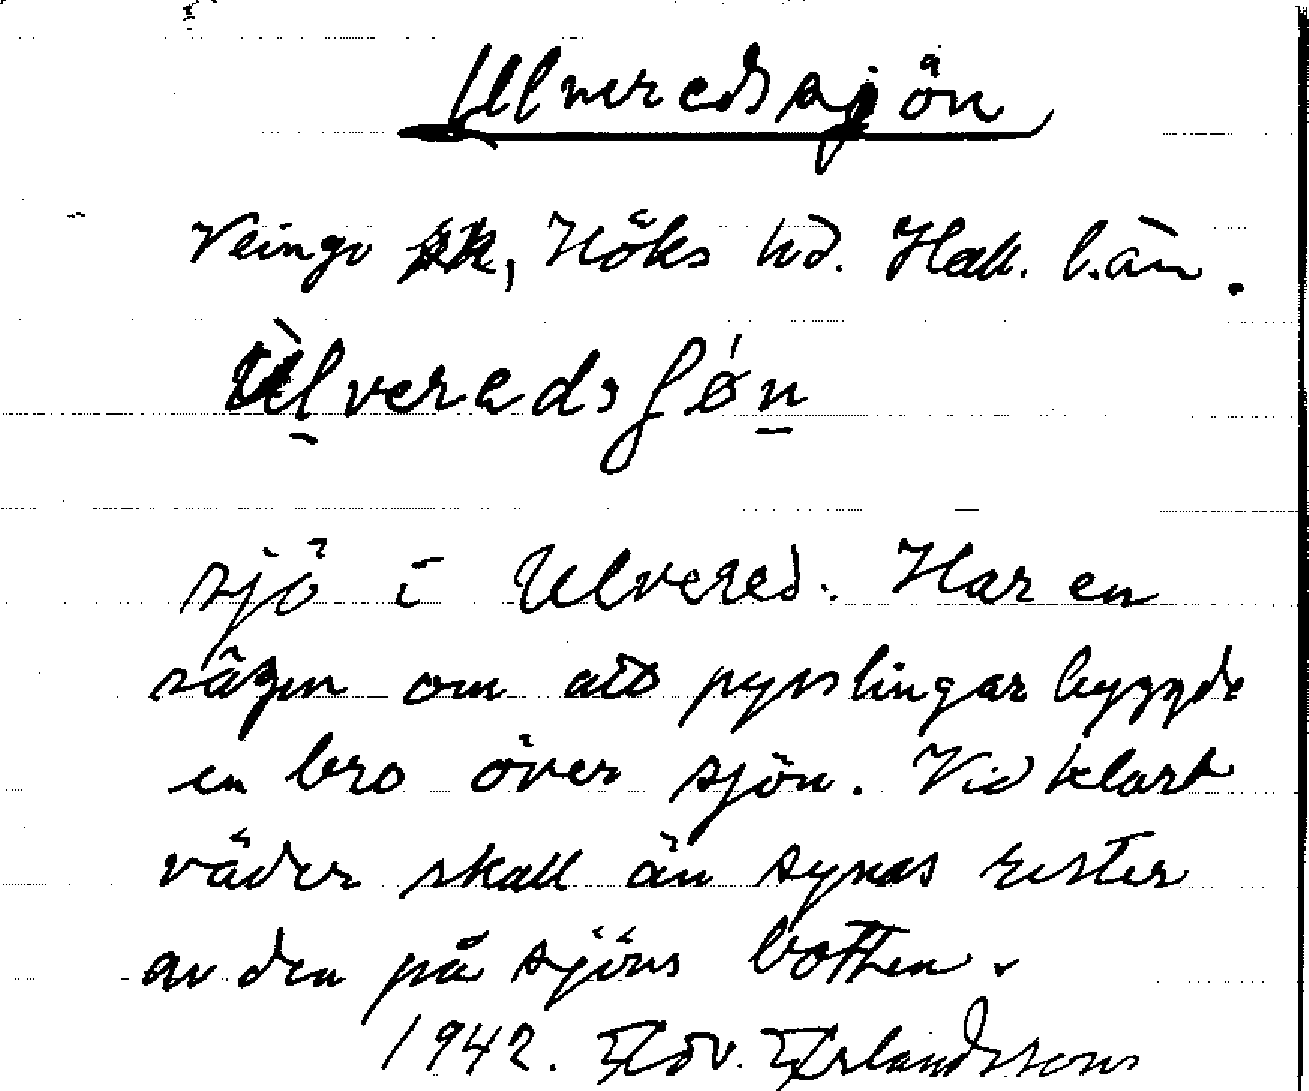 Ulveredssjön
Veinge sk, Höks hd. Hall. län.
Ulveredsʃøn
sjö i Ulvered. Har en
sägen om att pysslingar byggde
en bro över sjön. Vid klart
väder skall än synas rester
av den på sjöns botten.
1942. Edv. Erlandsson